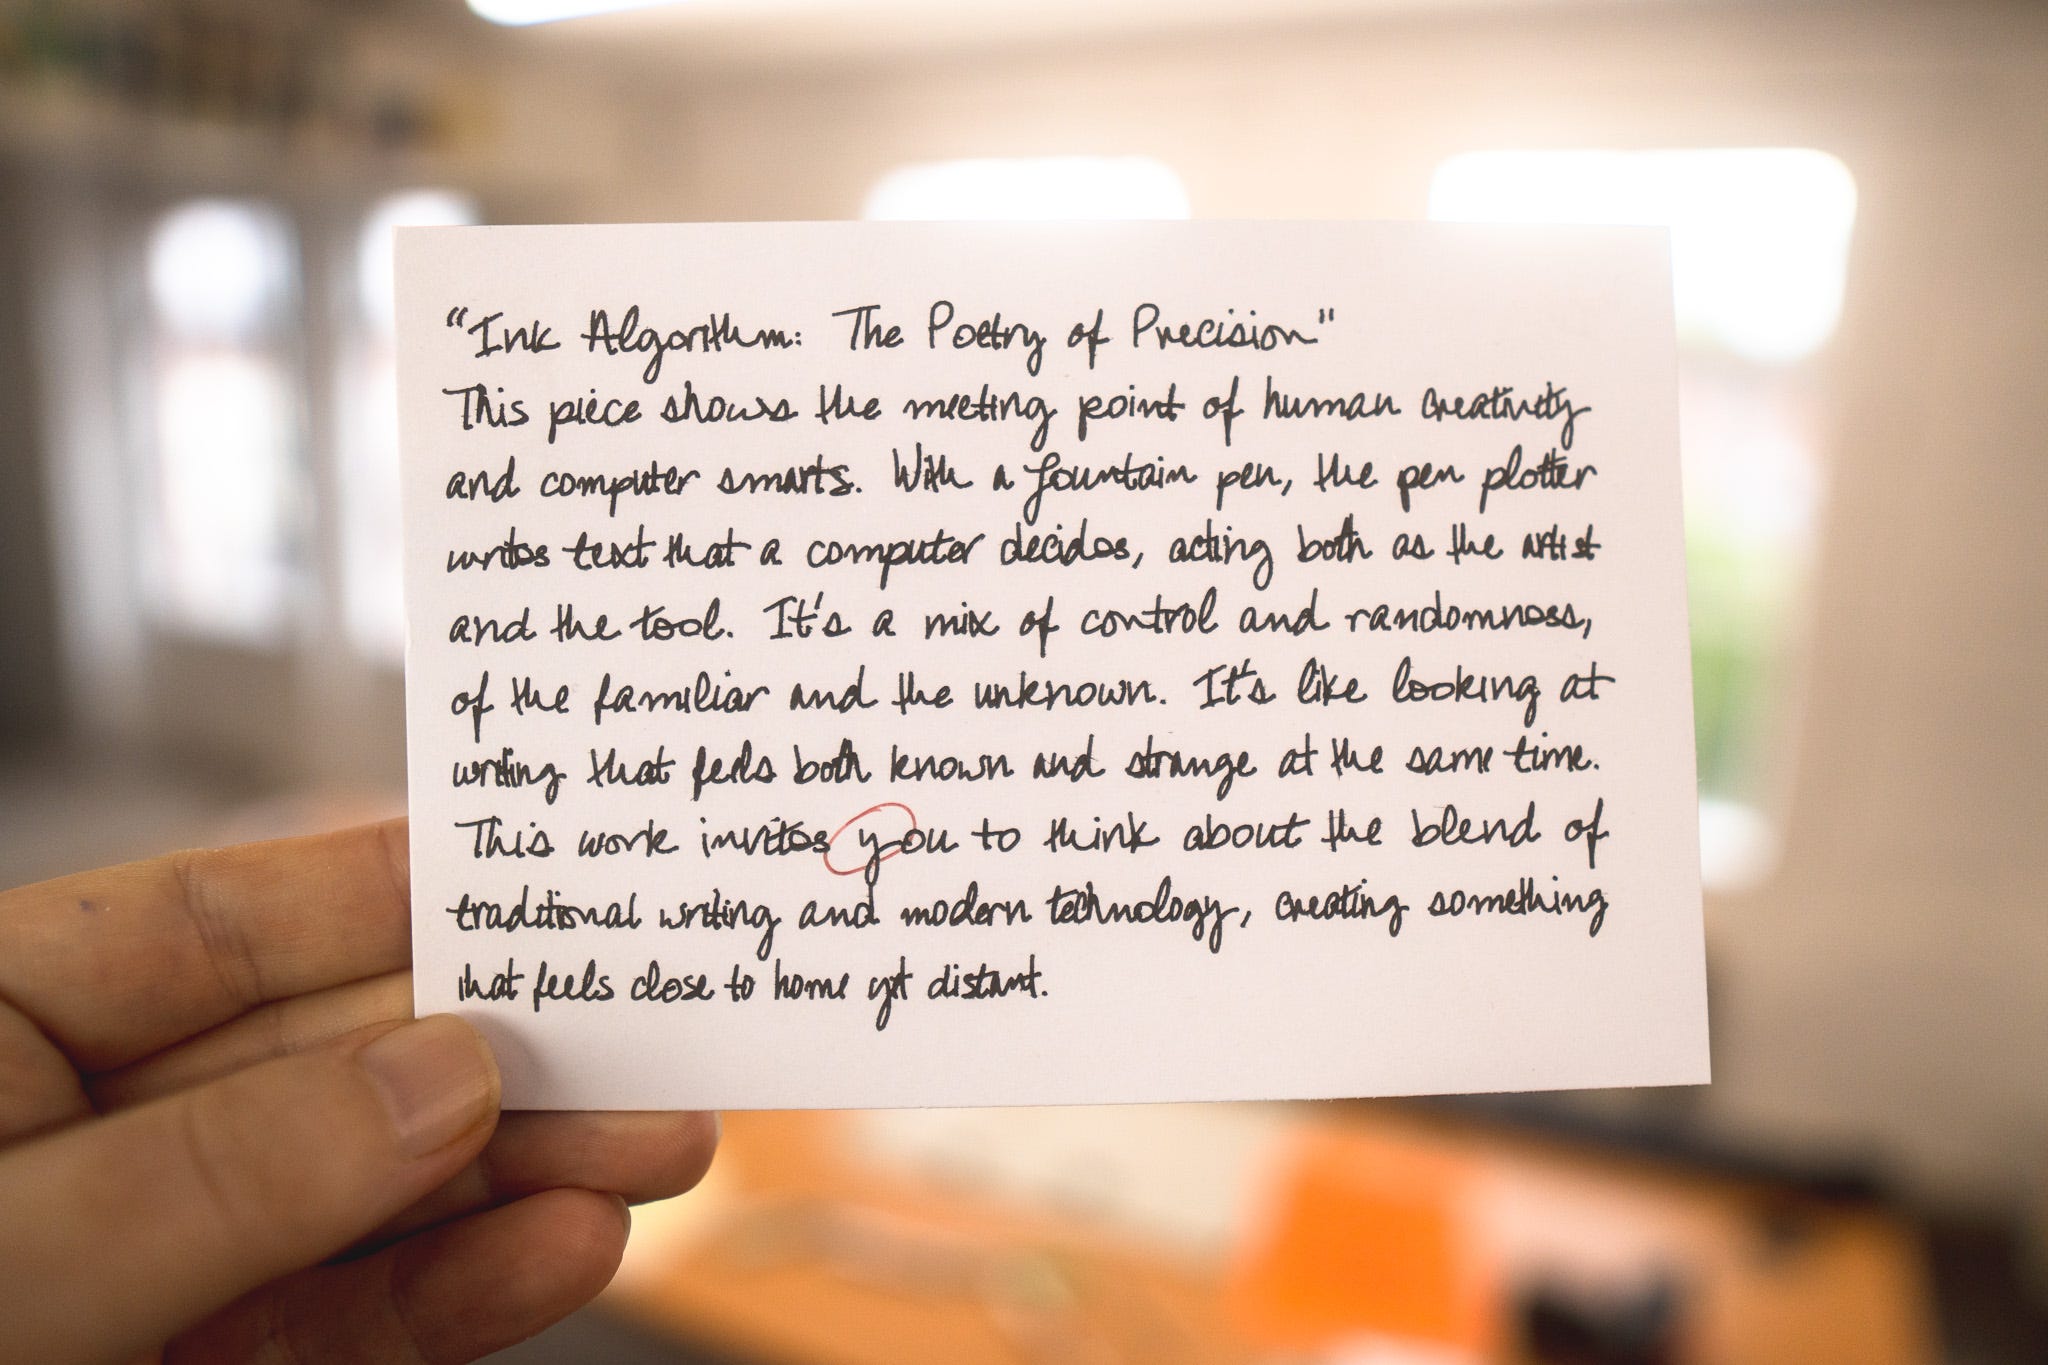 "Ink Algorithm: The Poetry of Precision"
This piece shows the meeting point of human creativity
and computer smarts. With a fountain pen, the pen plotter
writes text that a computer decides, acting both as the artist
and the tool. It's a mix of control and randomness,
of the familiar and the unknown. It's like looking at
writing that feels both known and strange at the same time.
This work invites you to think about the blend of
traditional writing and modern technology, creating something
that feels close to home yet distant.